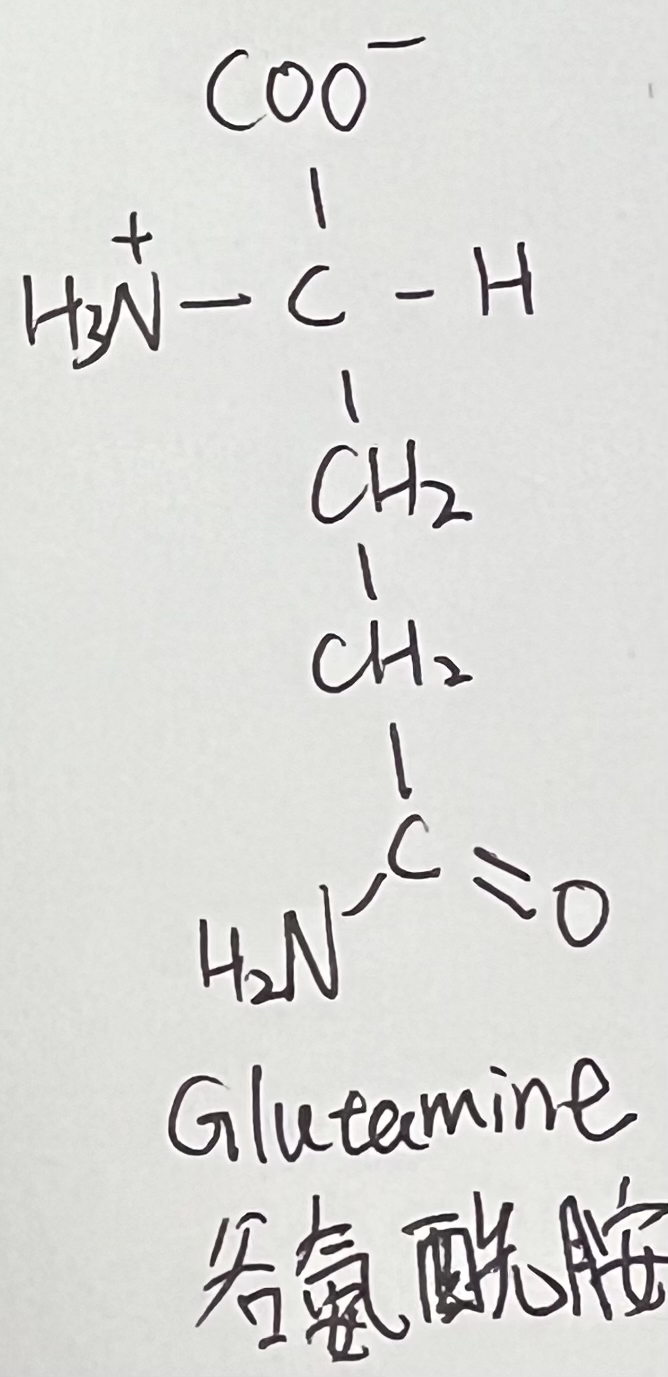 COO⁻
|
H₃N⁺ — C — H
|
CH₂
|
CH₂
|
C = O
H₂N
Glutamine
谷氨酰胺